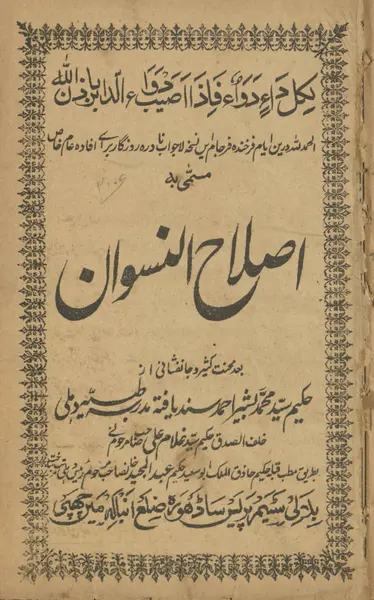 لکل داء دواء فاذا اصیب دواء الداء برا باذن الله
الحمد للہ درین ایام فرخندہ فرجام این نسخہ لاجواب نادرہ روزگار برای افادہ عام خاص
مسمّٰی بہ
اصلاح النسوان
بعد محنت کثیر و جانفشانی از
حکیم سید محمد بشیر احمد سند یافتہ مدرسہ طبیہ دہلی
خلف الصدق حکیم سید غلام علی صاحب مرحوم
بطریق مطب قبلہ حکیم حاذق الملک ابو سعید حکیم عبد المجید خانصاحب مرحوم
بلالی سٹیم پریس ساڈھورہ ضلع انبالہ میں چھپی